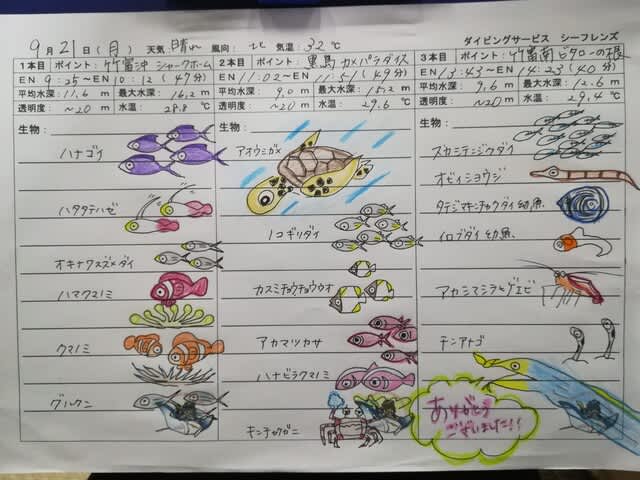 ダイビングサービス シーフレンズ
9月21日(月) 天気:晴れ 風向:北 気温:32℃
1本目 ポイント:竹富沖 シャークホーム
EN 9:25〜EN 10:12 (47分)
平均水深:11.6m 最大水深:16.2m
透明度:~20m 水温:28.8℃
生物:
ハナゴイ
ハタタテハゼ
オキナワスズメダイ
ハマクマノミ
クマノミ
グルクン
2本目 ポイント:黒島 カメパラダイス
EN 11:02〜EN 11:51 (49分)
平均水深:9.0m 最大水深:15.2m
透明度:~20m 水温:29.6℃
生物:
アオウミガメ
ノコギリダイ
カスミチョウチョウウオ
アカマツカサ
ハナビラクマノミ
キンチャクガニ
3本目 ポイント:竹富南 ビタローの根
EN 13:43〜EN 14:23 (40分)
平均水深:9.6m 最大水深:12.6m
透明度:~20m 水温:29.4℃
生物:
スカシテンジクダイ
オビイシヨウジ
タテジマキンチャクダイ幼魚
イロブダイ幼魚
アカシマシラヒゲエビ
チンアナゴ
ありがとう
ございました!!